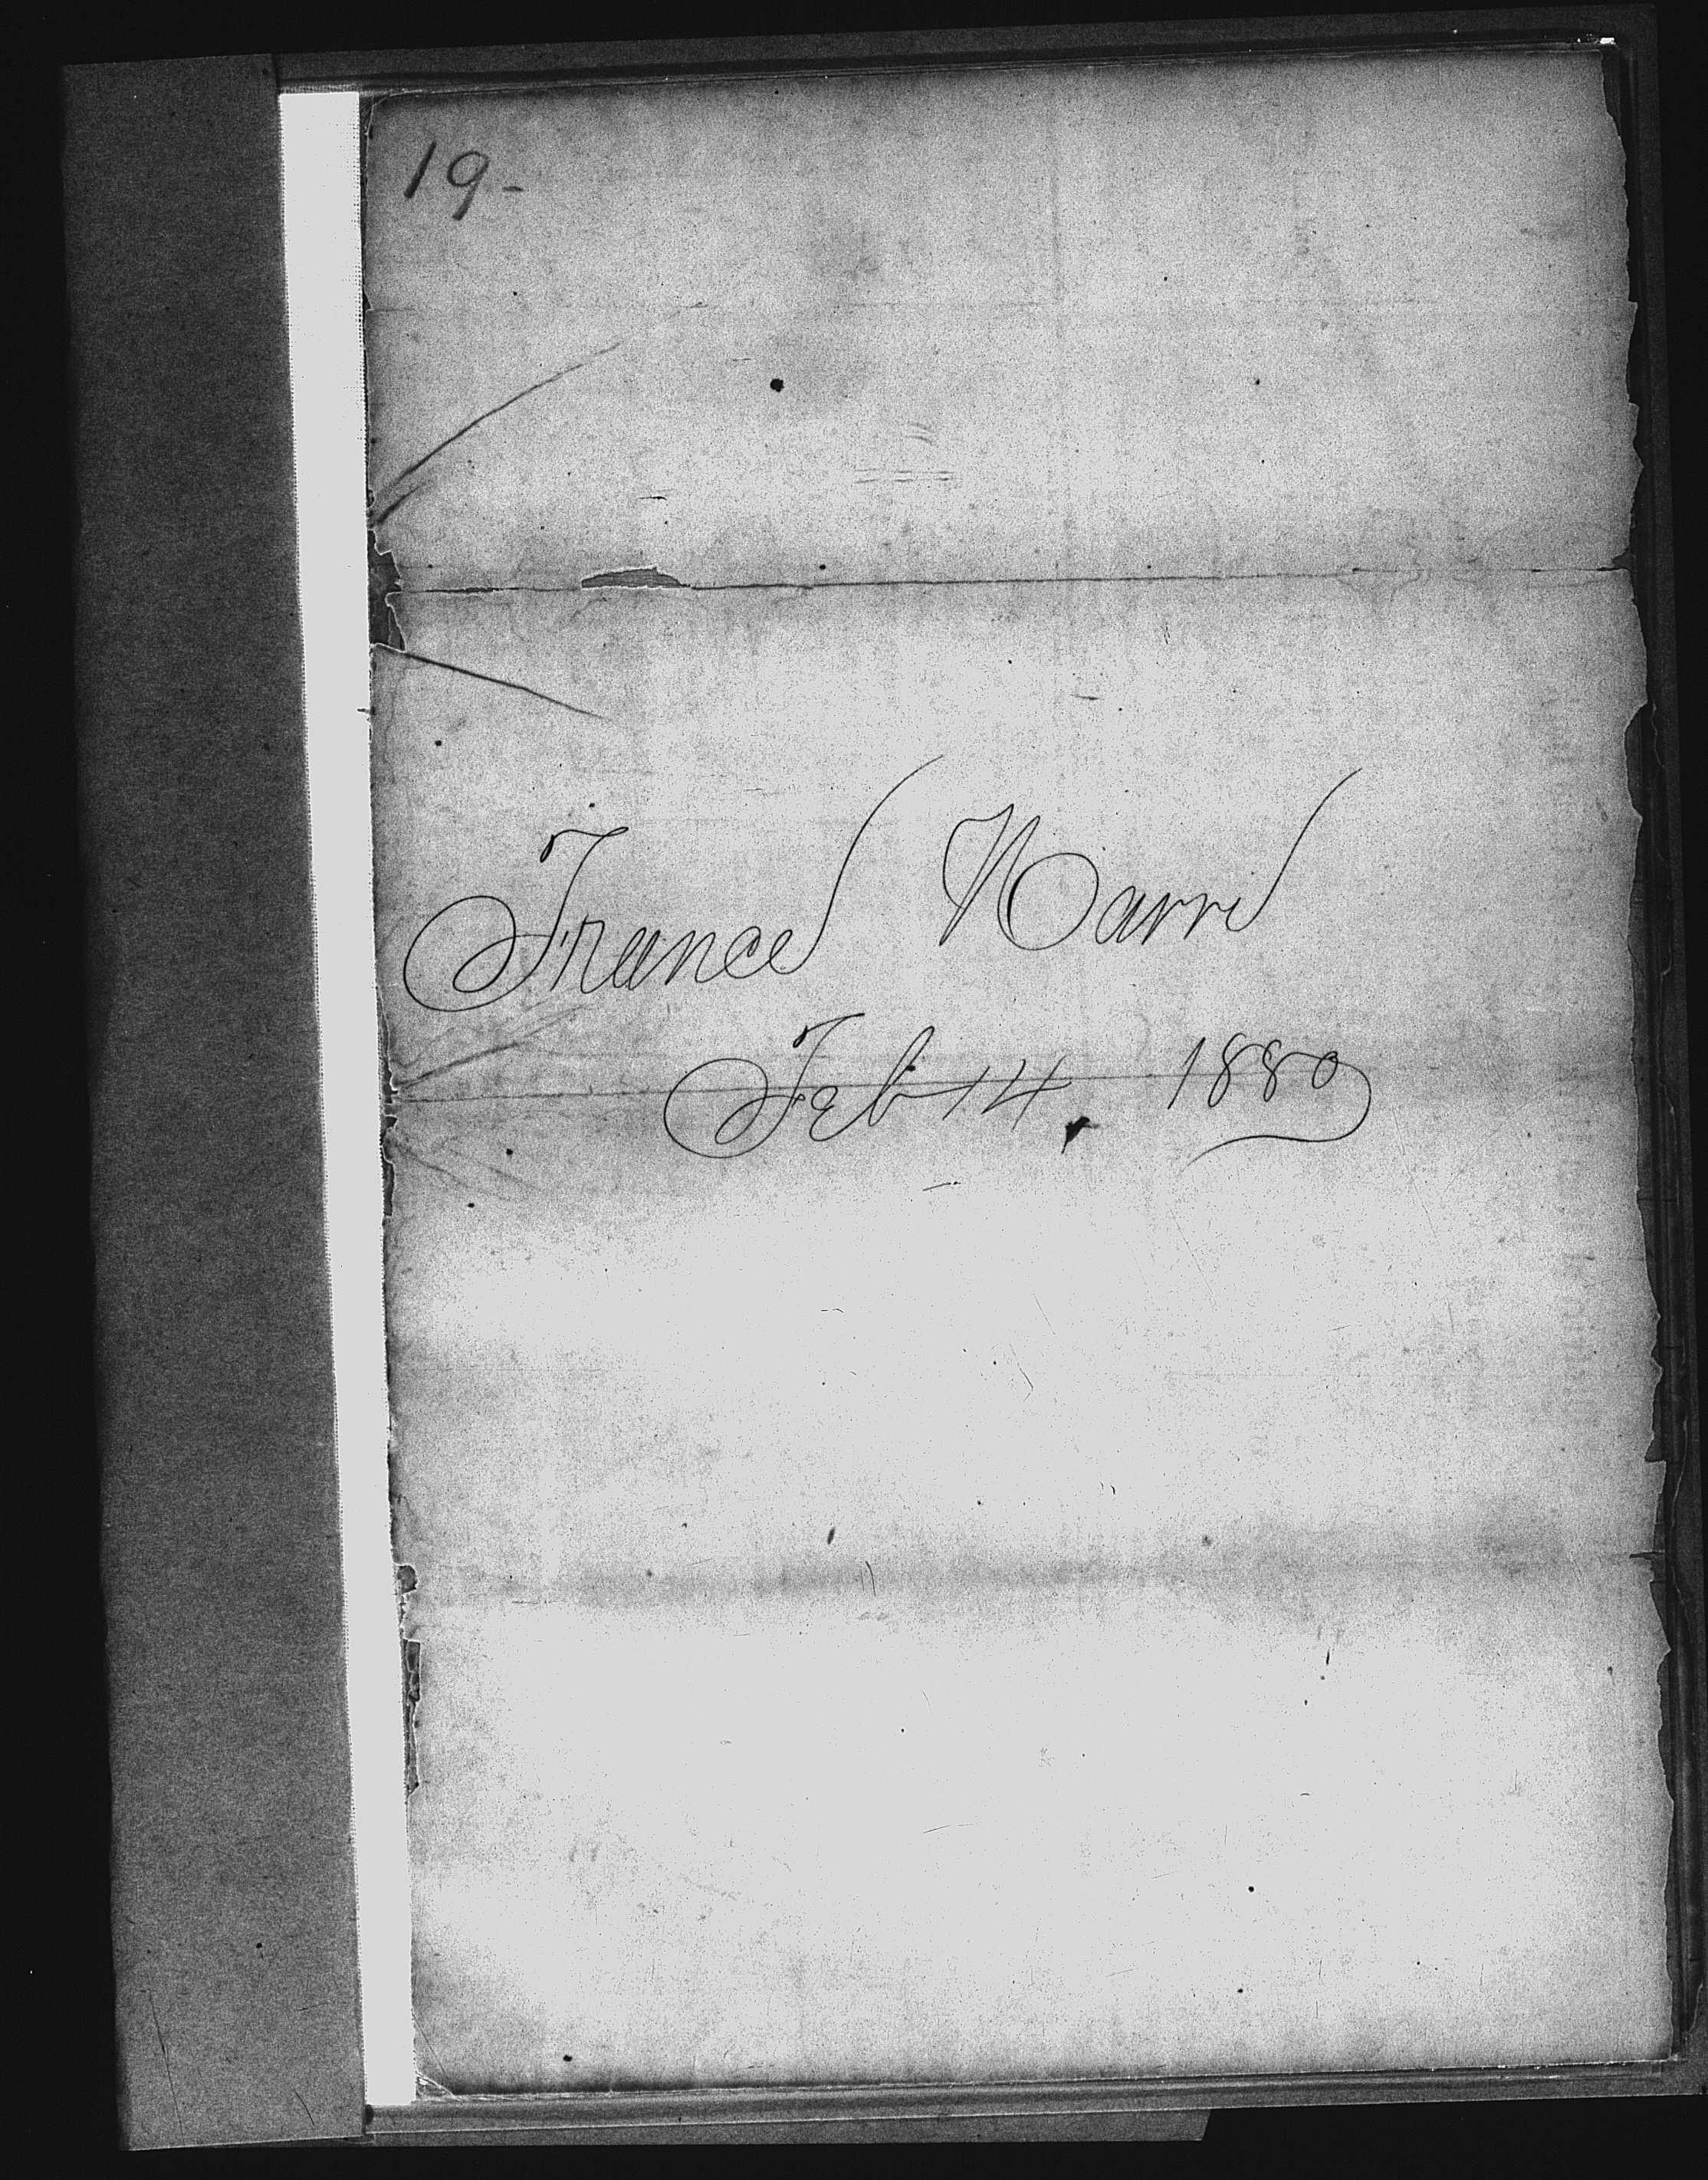 19-
Frances Harris
Feb 14, 1880